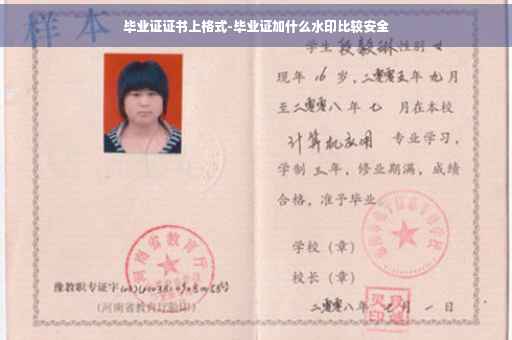 毕业证证书上格式-毕业证加什么水印比较安全
样本
学生 段毅琳 性别 女
现年 16 岁，二零零五年 九 月
至二零零八 年 七 月在本校
计算机应用 专业学习，
学制 三 年，修业期满，成绩
合格，准予毕业。
学校（章）
校长（章）
二零零八年 月 一 日
河南省教育厅
豫教职专证字
（河南省教育厅验印）